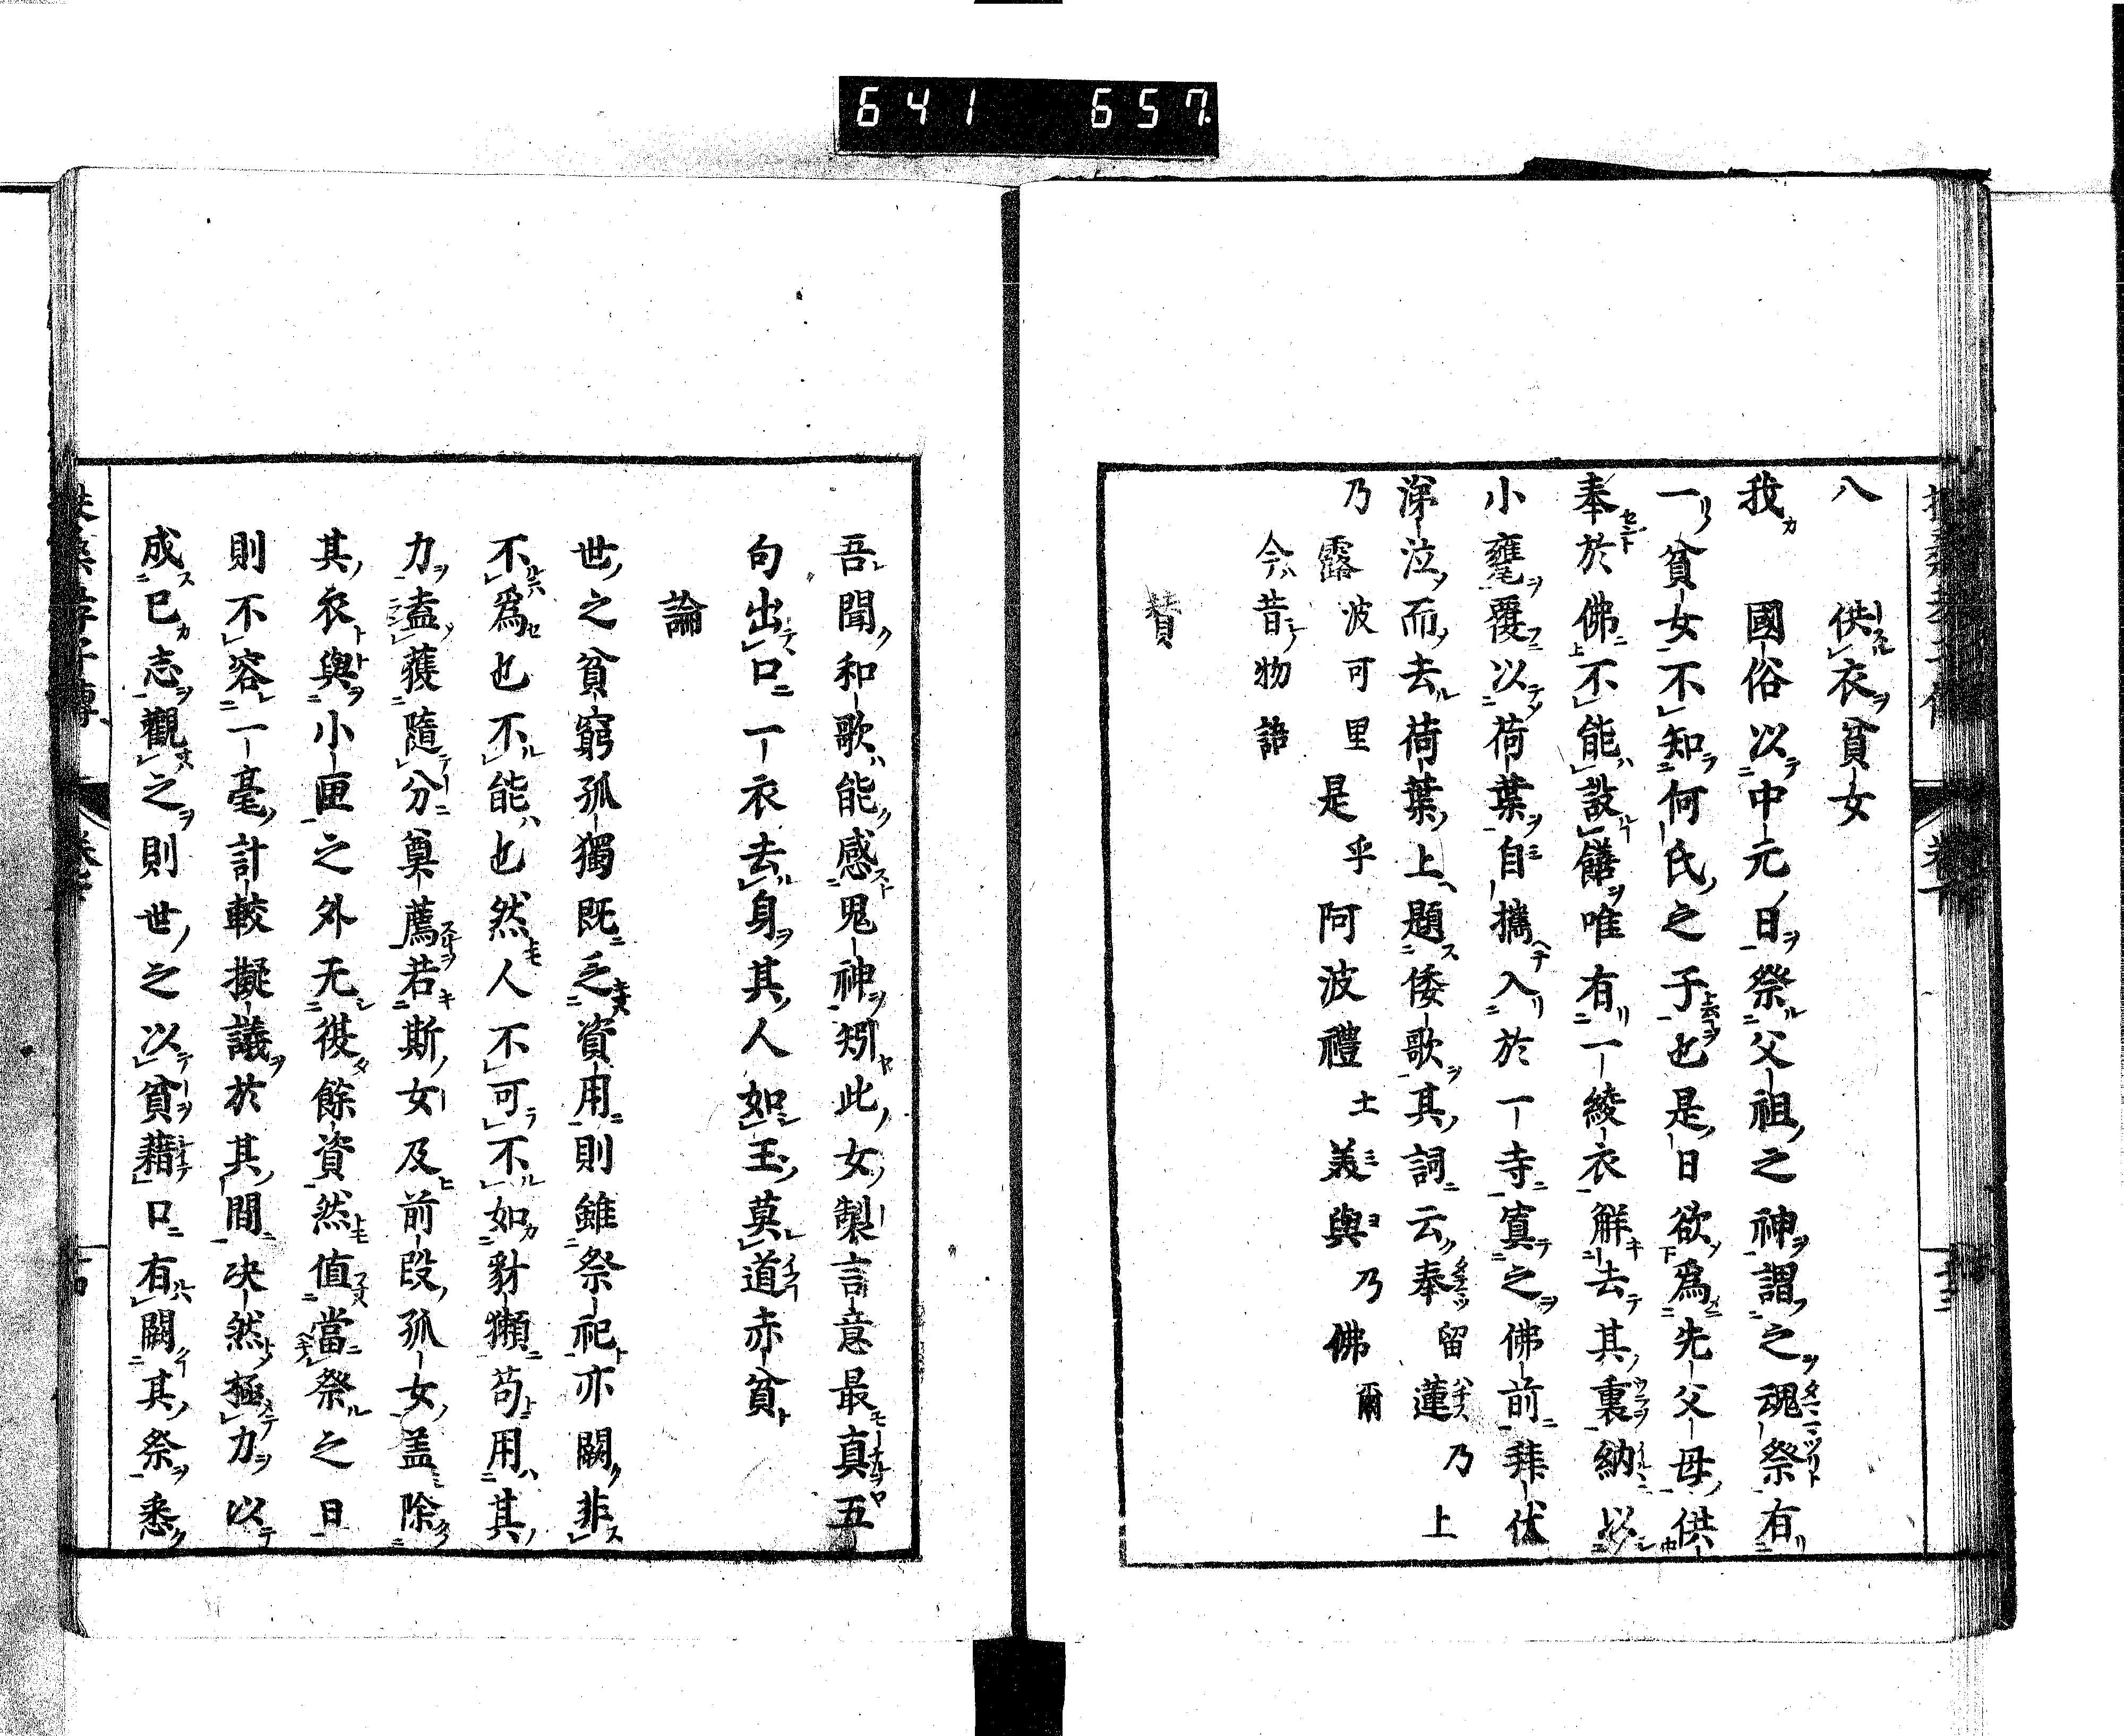 641 657
八 供衣貧女
我 國俗以中元日祭父祖之神謂之魂祭有
一貧女不知何氏之子也是日欲爲先父母供
奉於佛不能設饍唯有一綾衣解去其裏納以
小甕覆以荷葉自攜入於一寺寘之佛前拜伏
涕泣而去荷葉上題倭歌其詞云奉留蓮乃上
乃露波可里是乎阿波禮土美與乃佛爾
今昔物語
賛
吾聞和歌能感鬼神矧此女製言意最真五
句出口一衣去身其人如玉莫道赤貧
論
世之貧窮孤獨既乏資用則雖祭祀亦闕非
不爲也不能也然人不可不如豺獺苟用其
力盍獲隨分奠薦若斯女及前段孤女盖除
其衣與小匣之外无從餘資然值當祭之日
則不容一毫計較擬議於其間决然極力以
成己志觀之則世之以貧藉口有闕其祭悉